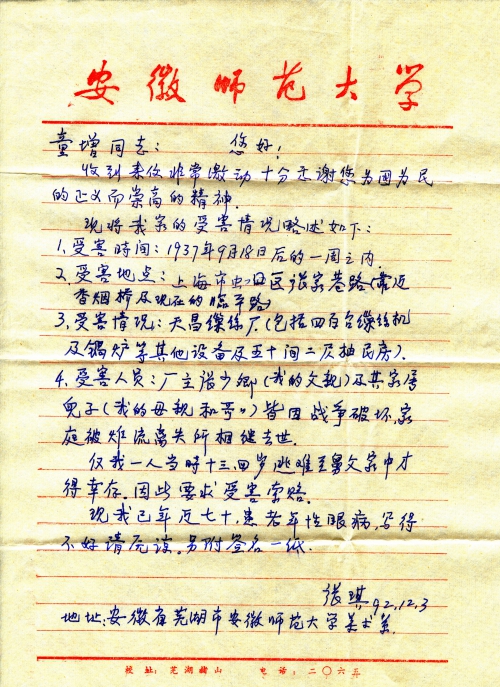 安徽师范大学
童增同志： 您好！
收到来信非常激动十分感谢您为国为民
的正义而崇高的精神．
现将我家的受害情况略述如下：
1、受害时间：1937年9月18日后的一周之内．
2、受害地点：上海市虹口区张家巷路（靠近
香烟桥及现在的临平路）
3、受害情况：天昌缫丝厂（包括四百台缫丝机
及锅炉等其他设备及五十间二层楼民房）．
4、受害人员：厂主张少卿（我的父亲）及其家属
儿子（我的母亲和哥〃）皆因战争破坏，家
庭被难流离失所相继去世．
仅我一人当时十三、四岁逃难至舅父家中才
得幸存．因此要求受害索赔．
现我已年近七十，患老年性眼病，写得
不好请原谅．另附签名一纸．
张琪 92.12.3
地址：安徽省芜湖市安徽师范大学美术系．
校址：芜湖赭山 电话：二〇六五